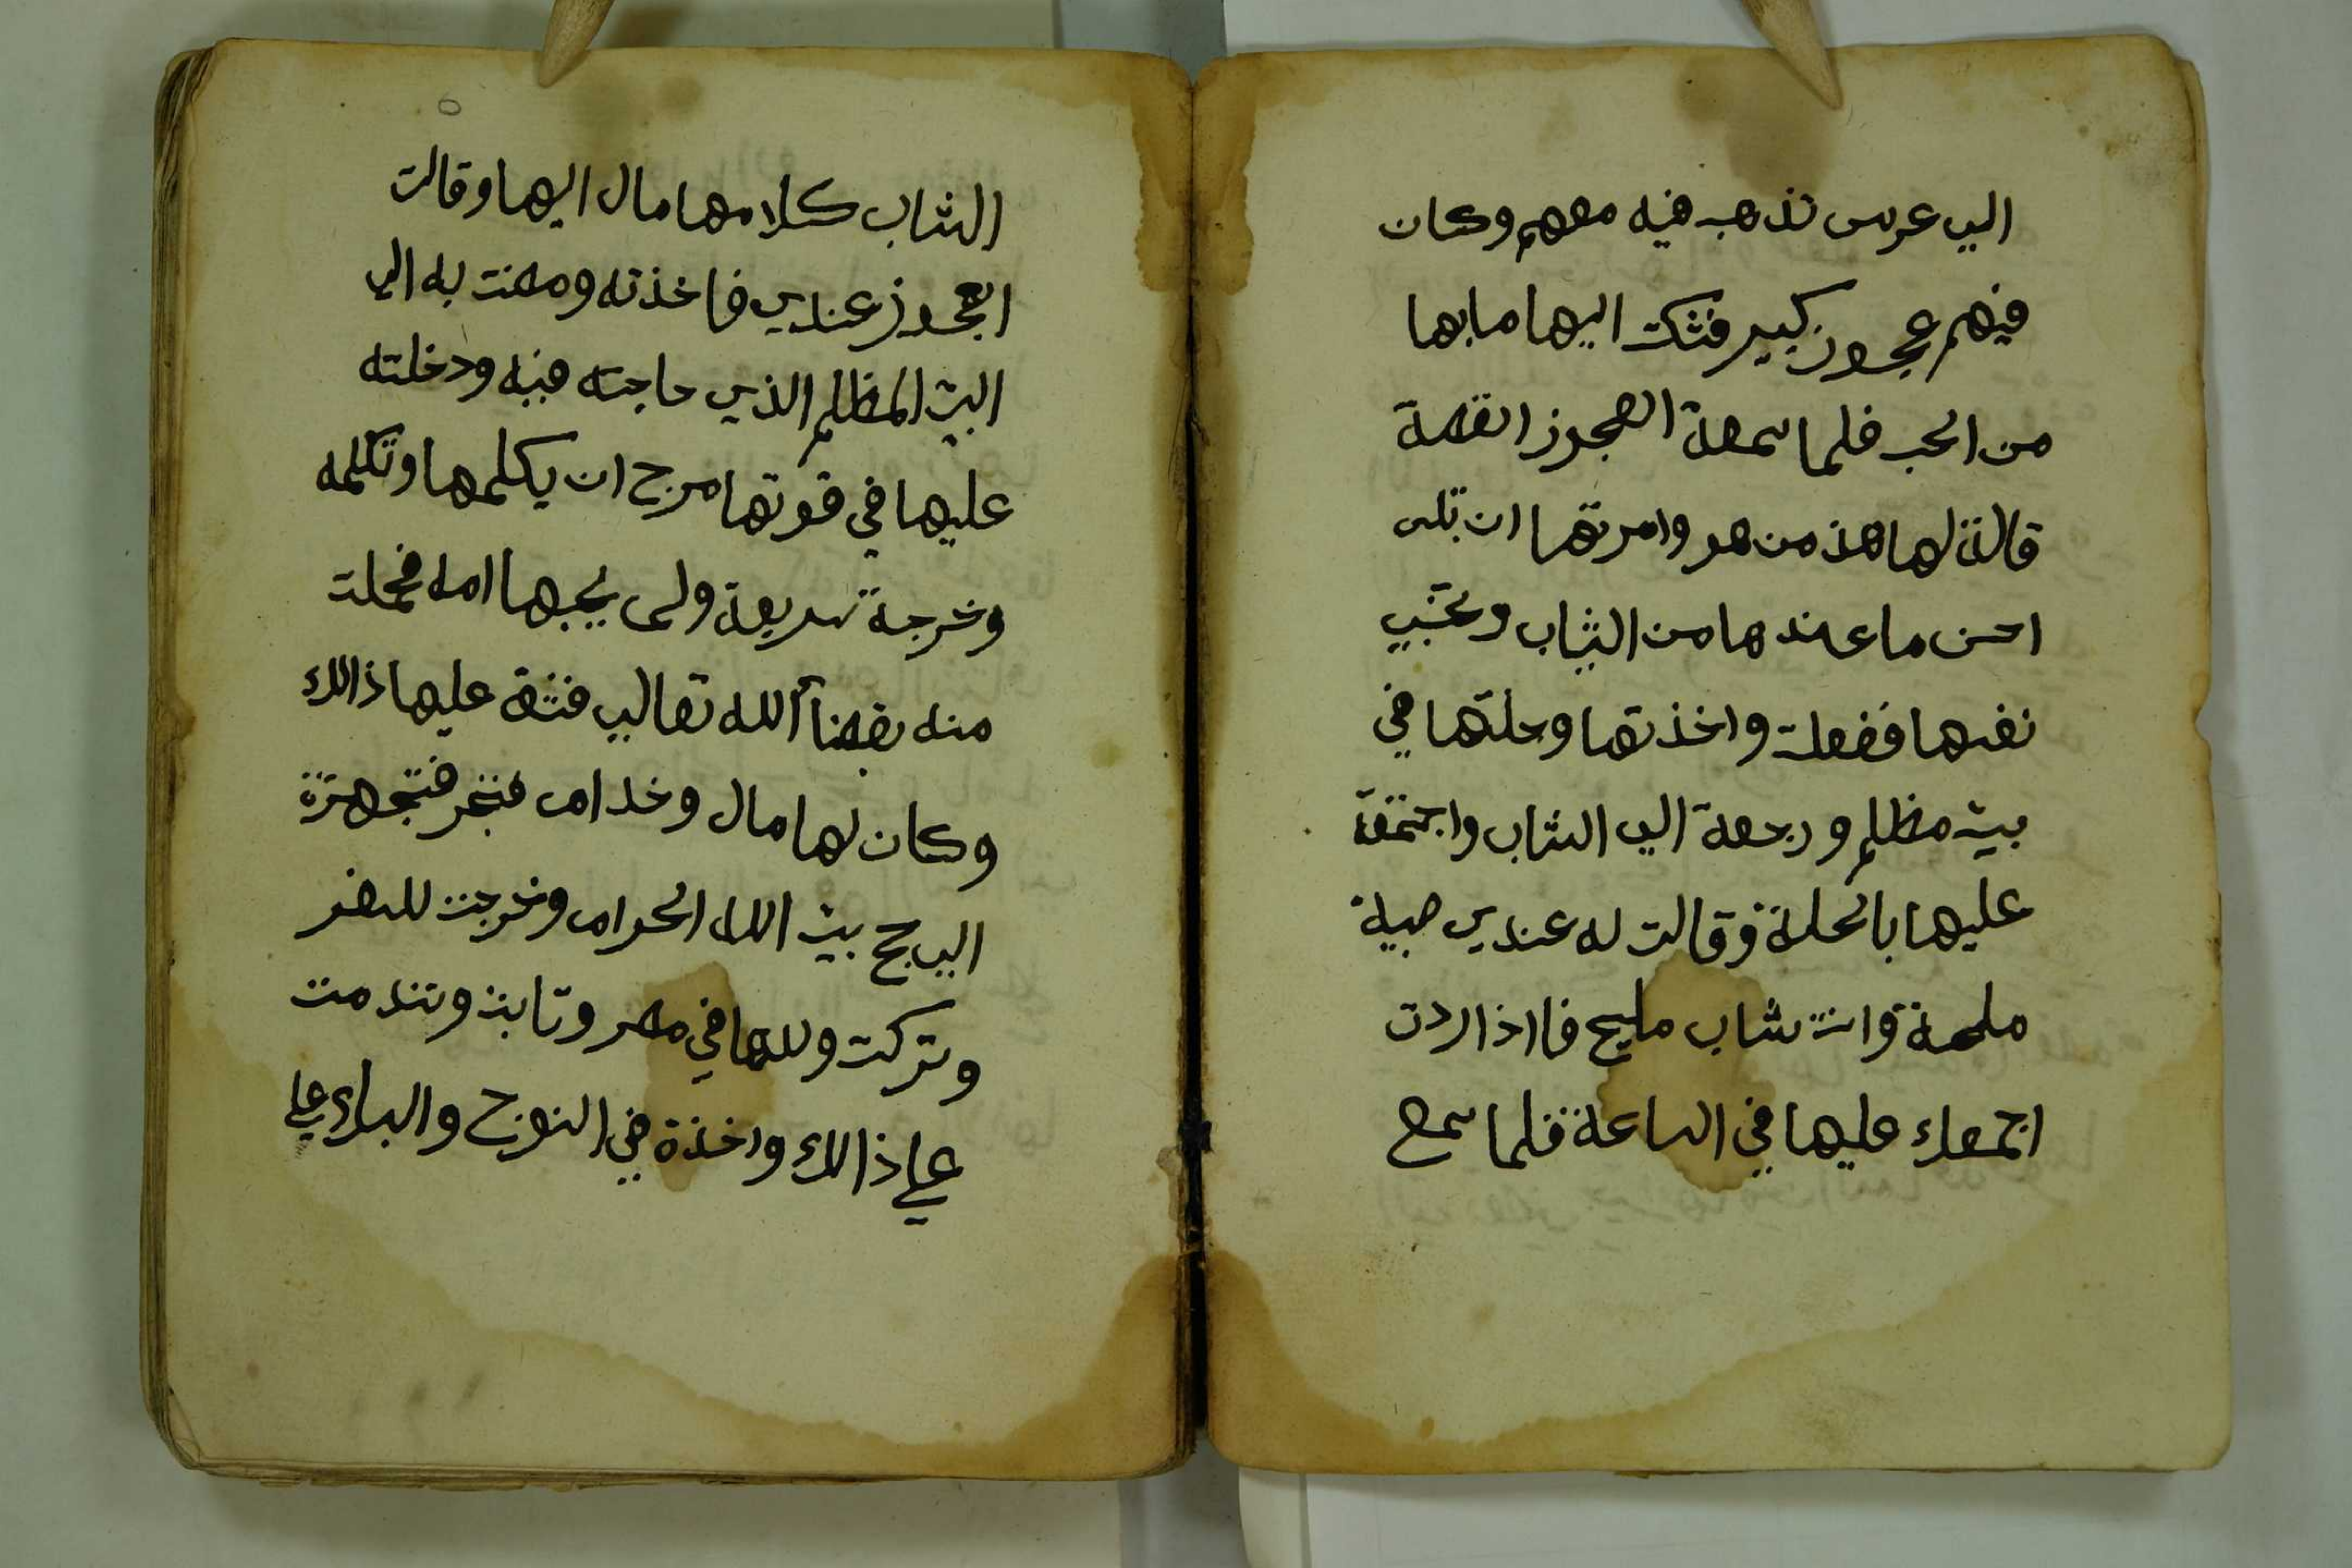 الي عرس تذهب فيه معهم وكان
فيهم عجوز كبير فشكت اليها ما بها
من الحب فلما سمعة العجوز القصة
قالة لها هذ من هو وامرتها ان تلبس
احسن ما عندها من الثياب وتخبي
نفسها ففعلت واخذتها وحلتها في
بيت مظلم ورجعة الي الشاب واجتمعة
عليها بالحلة وقالت له عندي صبية
مليحة وانت شاب مليح فااذا اردت
اجمعك عليها في الساعة فلما سمع
الشاب كلامها مال اليها وقالت
العجوز عندي فاخذته ومضت به الي
البيت المظلم الذي حاجته فيه ودخلته
عليها في قوتها مرج ان يكلمها وتكلمه
وخرجة سريعة ولم يجبها امه فحملت
منه بقضاء الله تعالي فشق عليها ذالك
وكان لها مال وخدام فتجهزة
الي حج بيت الله الحرام وخرجت للسفر
وتركت ولدها في مصر وتابت وتندمت
علي ذالك واخذة في النوح والبكاء علي